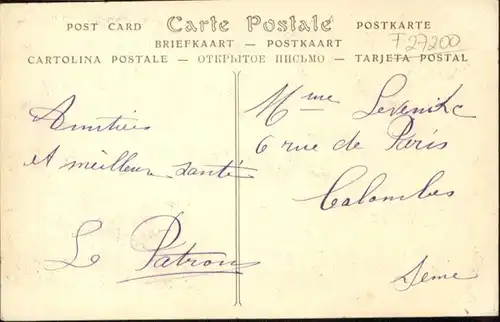 POST CARD Carte Postale POSTKARTE
BRIEFKAART — POSTKAART
CARTOLINA POSTALE — ОТКРЫТОЕ ПИСЬМО — TARJETA POSTAL
F 27200
Amitiés
et meilleure santé
Le Patron
Mme
6 rue de Paris
Colombes
Seine